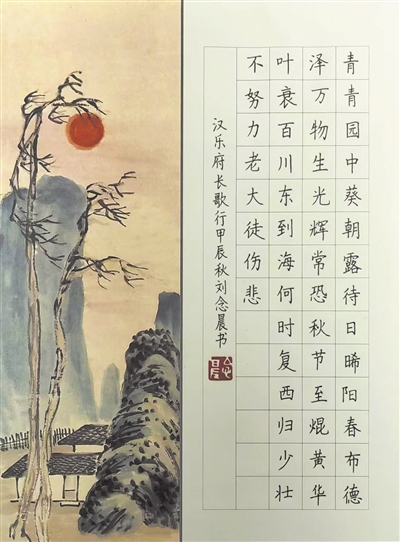 青青园中葵朝露待日晞阳春布德
泽万物生光辉常恐秋节至焜黄华
叶衰百川东到海何时复西归少壮
不努力老大徒伤悲
汉乐府长歌行甲辰秋刘念晨书